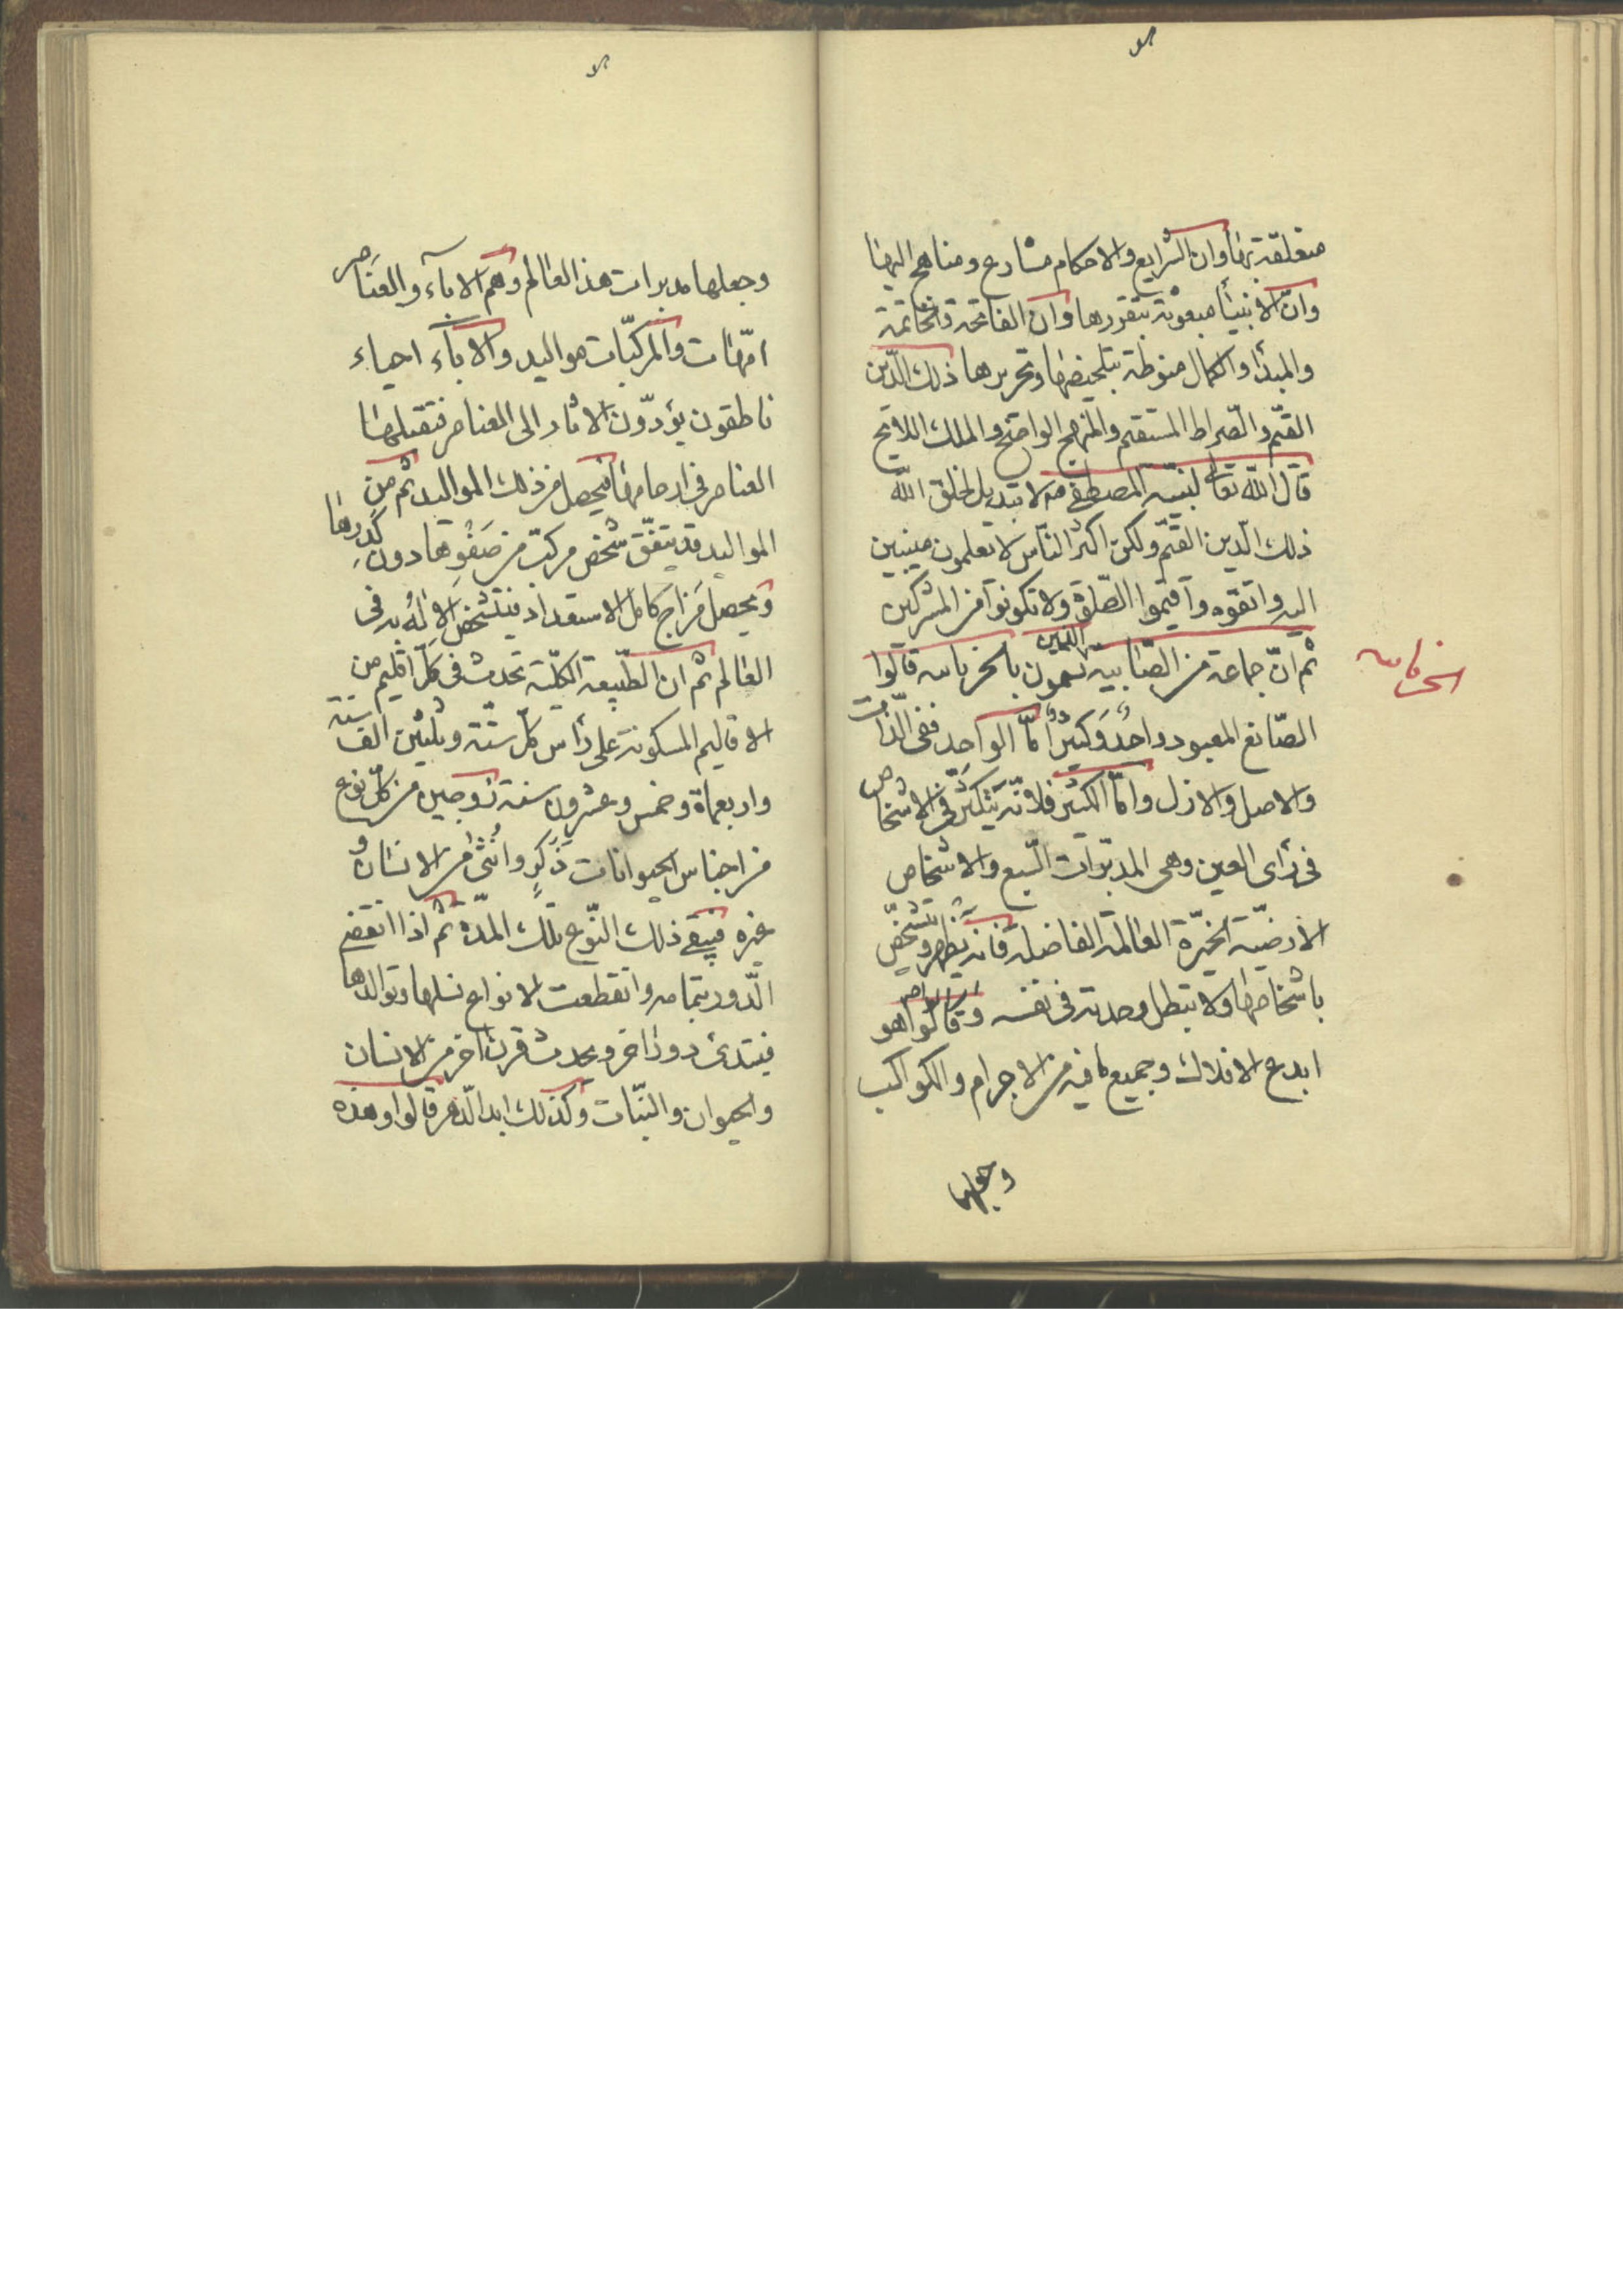 متعلقة بها وان الشرايع والاحكام مشارع ومناهج اليها
وانّ الانبياء مبعوثة بتقررها وان الفاتحة والخاتمة
والمبدأ والكمال منوطة بتلخيصها وتحريرها ذلك الدّين
القيّم والصّراط المستقيم والمنهج الواضح والملك اللايح
قال الله تعالى لنبيّه المصطفى صم لا تبديل لخلق الله
ذلك الدّين القيّم ولكنّ اكثر النّاس لا تعلمون منيبين
اليه واتقوه وأقيموا الصّلوة ولا تكونوا من المشركين
ثم انّ جماعة من الصّابية الذين يسمون بالخرباسه قالوا
الخرباسه
الصّانع المعبود واحدٌ وكثيرٌ أمّا الواحد ففى الذّات
والاصل والازل وامّا الكثير فلانّه يتكثّر فى الاشخاص
فى رأى العين وهى المدبّرات السّبع والاشخاص
الارضيّة الخيّرة العالمة الفاضلة فانه يظهر ويتشخّص
باشخاصها ولا يبطل وحدته فى نفسه وقالوا هو
ابدع الافلاك وجميع ما فيه من الاجرام والكواكب
وجعلها
وجعلها مدبرات هذا العالم وهم الآباء والعناصر
امّهات والمركّبات مواليد والآباء احياء
ناطقون يؤدّون الاثار الى العناصر فتقبلها
العناصر فى ارحامها فيحصل من ذلك المواليد ثم من
المواليد قد يتفّق شخص مركّب من صَفْوِها دون كَدَرِها
ويحصل مزاج كامل الاستعداد فيتشخّص الاله به فى
العالم ثم ان الطّبيعة الكلّية تحدث فى كلّ اقليم من
الاقاليم المسكونة على رأس كلّ ستّة وثلثين الف سنة
واربعمأة وخمس وعشرون سنة زوجين من كلّ نوع
من اجناس الحيوانات ذَكَرٍ وانثى من الانسان و
غيره فيبقى ذلك النّوع تلك المدّة ثم اذا انقضى
الدّور بتمامه وانقطعت الانواع نسلها وتوالدها
فيبتدئ دور اخر ويحدث قرن اخر من الانسان
والحيوان والنّبات وكذلك ابد الدّهر قالوا وهذه